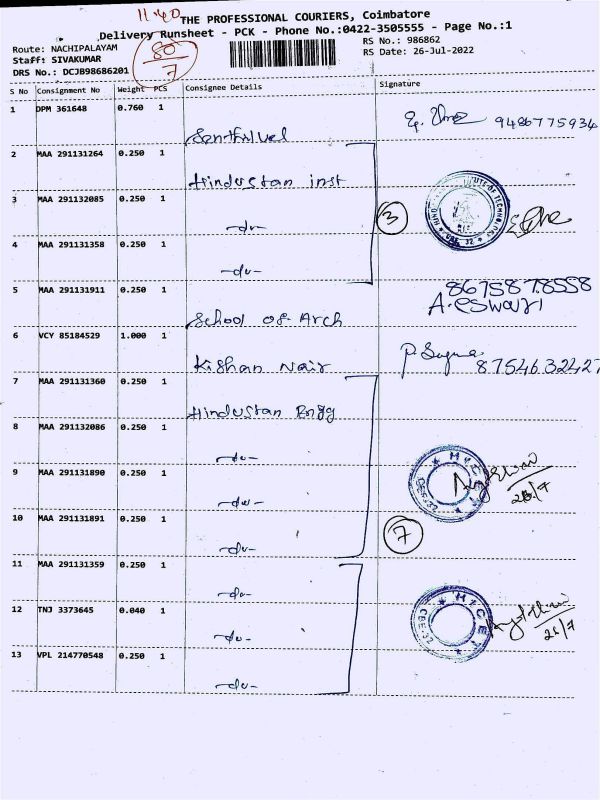 11.40
THE PROFESSIONAL COURIERS, Coimbatore
Delivery Runsheet - PCK - Phone No.:0422-3505555 - Page No.:1
Route: NACHIPALAYAM
80/7
RS No.: 986862
Staff: SIVAKUMAR
RS Date: 26-Jul-2022
DRS No.: DCJB98686201
S No Consignment No Weight PCS Consignee Details Signature
1 DPM 361648 0.760 1 Senthilvel 9486775934
2 MAA 291131264 0.250 1 Hindustan inst
3 MAA 291132085 0.250 1 -do- 3
4 MAA 291131358 0.250 1 -do-
5 MAA 291131911 0.250 1 School of Arch 8675878558
A. eswari
6 VCY 85184529 1.000 1 Kishan Nair 8754632427
7 MAA 291131360 0.250 1 Hindustan Engg
8 MAA 291132086 0.250 1 -do-
9 MAA 291131890 0.250 1 -do- 26/7
10 MAA 291131891 0.250 1 -do- 7
11 MAA 291131359 0.250 1 -do-
12 TNJ 3373645 0.040 1 -do- 26/7
13 VPL 214770548 0.250 1 -do-